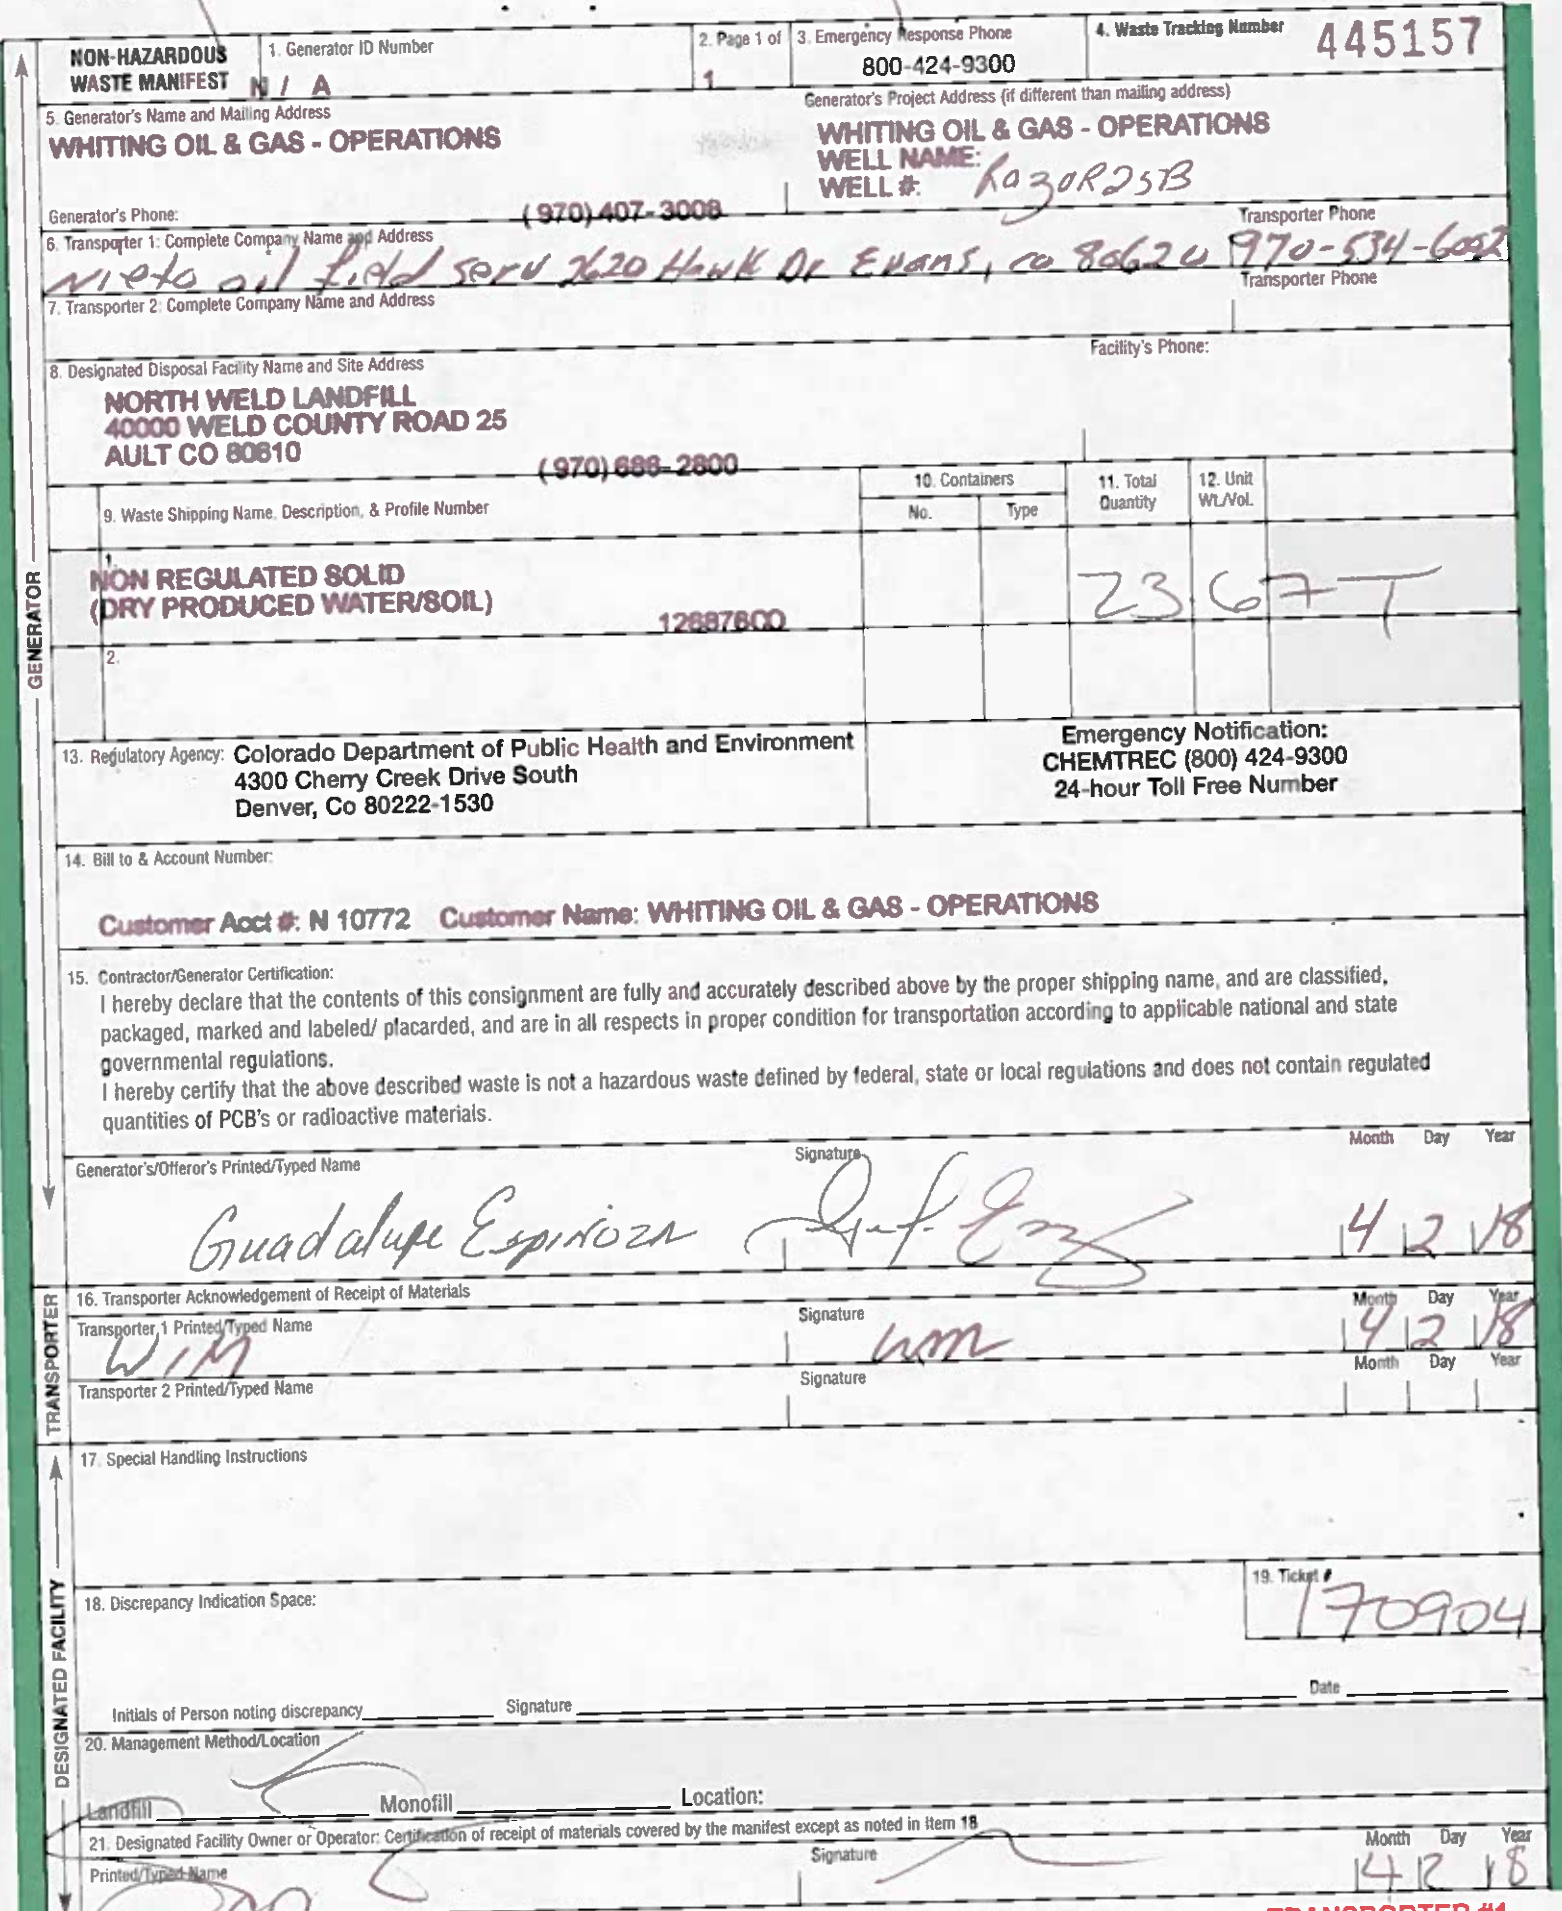 NON-HAZARDOUS
WASTE MANIFEST
1. Generator ID Number
N / A
2. Page 1 of
1
3. Emergency Response Phone
800-424-9300
4. Waste Tracking Number
445157
5. Generator's Name and Mailing Address
WHITING OIL & GAS - OPERATIONS
Generator's Project Address (if different than mailing address)
WHITING OIL & GAS - OPERATIONS
WELL NAME:
WELL #: RazOR25B
Generator's Phone: (970)407-3008
6. Transporter 1: Complete Company Name and Address
Transporter Phone
Nieto oil field serv 2620 Hawk Dr Evans, co 80620 970-534-6002
7. Transporter 2: Complete Company Name and Address
Transporter Phone
8. Designated Disposal Facility Name and Site Address
Facility's Phone:
NORTH WELD LANDFILL
40000 WELD COUNTY ROAD 25
AULT CO 80610
(970)686-2800
9. Waste Shipping Name, Description, & Profile Number
10. Containers
No. Type
11. Total Quantity
12. Unit Wt./Vol.
1.
NON REGULATED SOLID
(DRY PRODUCED WATER/SOIL)
12687600
23.67 T
2.
GENERATOR
13. Regulatory Agency: Colorado Department of Public Health and Environment
4300 Cherry Creek Drive South
Denver, Co 80222-1530
Emergency Notification:
CHEMTREC (800) 424-9300
24-hour Toll Free Number
14. Bill to & Account Number:
Customer Acct #: N 10772 Customer Name: WHITING OIL & GAS - OPERATIONS
15. Contractor/Generator Certification:
I hereby declare that the contents of this consignment are fully and accurately described above by the proper shipping name, and are classified,
packaged, marked and labeled/ placarded, and are in all respects in proper condition for transportation according to applicable national and state
governmental regulations.
I hereby certify that the above described waste is not a hazardous waste defined by federal, state or local regulations and does not contain regulated
quantities of PCB's or radioactive materials.
Generator's/Offeror's Printed/Typed Name
Signature
Month Day Year
Guadalupe Espinoza
4 2 18
TRANSPORTER
16. Transporter Acknowledgement of Receipt of Materials
Transporter 1 Printed/Typed Name
Signature
Month Day Year
4 2 18
Transporter 2 Printed/Typed Name
Signature
Month Day Year
17. Special Handling Instructions
DESIGNATED FACILITY
18. Discrepancy Indication Space:
19. Ticket #
170904
Initials of Person noting discrepancy
Signature
Date
20. Management Method/Location
Landfill Monofill Location:
21. Designated Facility Owner or Operator: Certification of receipt of materials covered by the manifest except as noted in Item 18
Printed/Typed Name
Signature
Month Day Year
4 2 18
TRANSPORTER #1